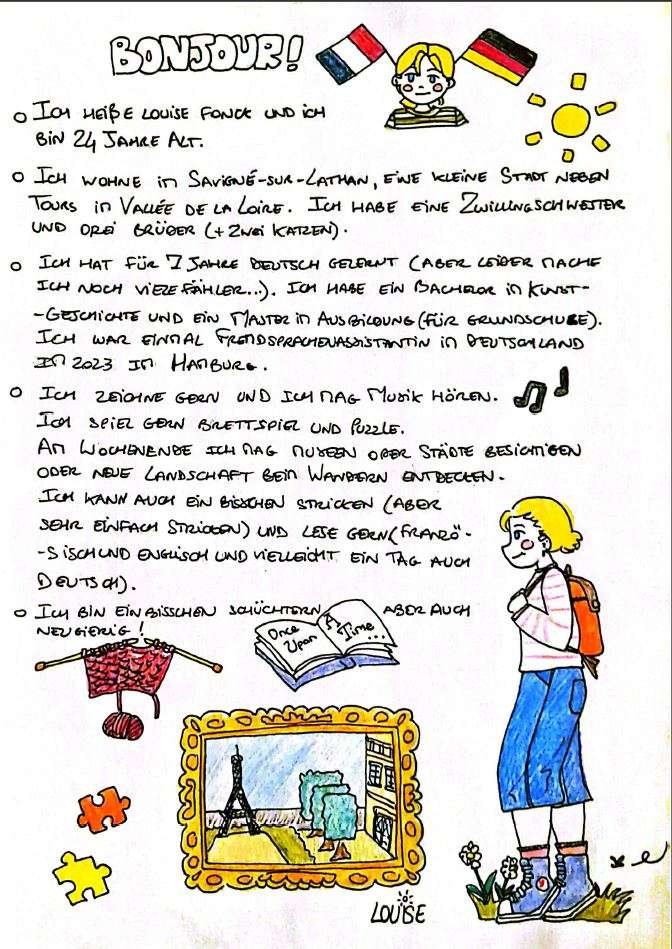 BONJOUR!
Ich heiße Louise Fonck und ich
bin 24 Jahre alt.
Ich wohne in Savigné-sur-Lathan, eine kleine Stadt neben
Tours in Vallée de la Loire. Ich habe eine Zwillingschwester
und drei Brüder (+ zwei Katzen).
Ich hat für 7 Jahre Deutsch gelernt (aber leider mache
ich noch viele Fähler...). Ich habe ein Bachelor in Kunst-
-geschichte und ein Master in Ausbildung (für Grundschule).
Ich war einmal Fremdsprachenassistantin in Deutschland
in 2023 in Hamburg.
Ich zeichne gern und ich mag Musik hören.
Ich spiel gern Brettspiel und Puzzle.
Am Wochenende ich mag museen oder Städte besichtigen
oder neue Landschaft beim Wandern entdecken.
Ich kann auch ein bisschen stricken (aber
sehr einfach stricken) und lese gern (franzö-
-sisch und englisch und vielleicht ein Tag auch
Deutsch).
Ich bin ein bisschen schüchtern aber auch
neugierig!
Once Upon A Time...
LOUISE